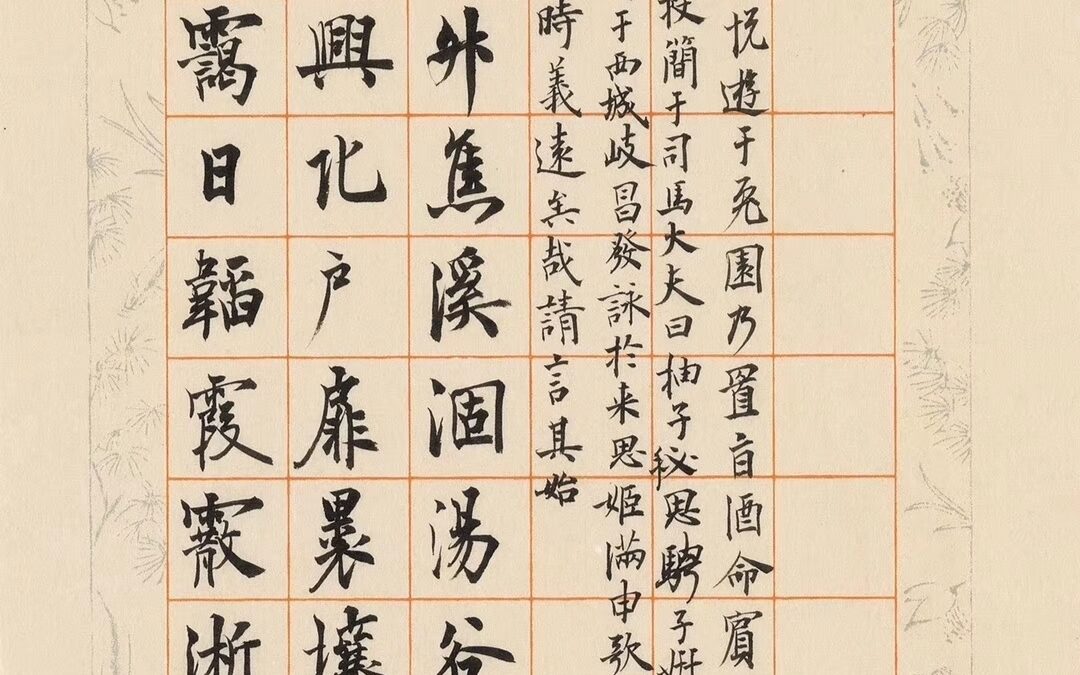 悦遊于兎園乃置旨酒命賓
授簡于司馬大夫曰抽子秘思騁子妍
于西城岐昌發詠於来思姬滿申歌
時義遠矣哉請言其始
升焦溪涸湯谷
興北户扉壤
靄日韜霞霰淅